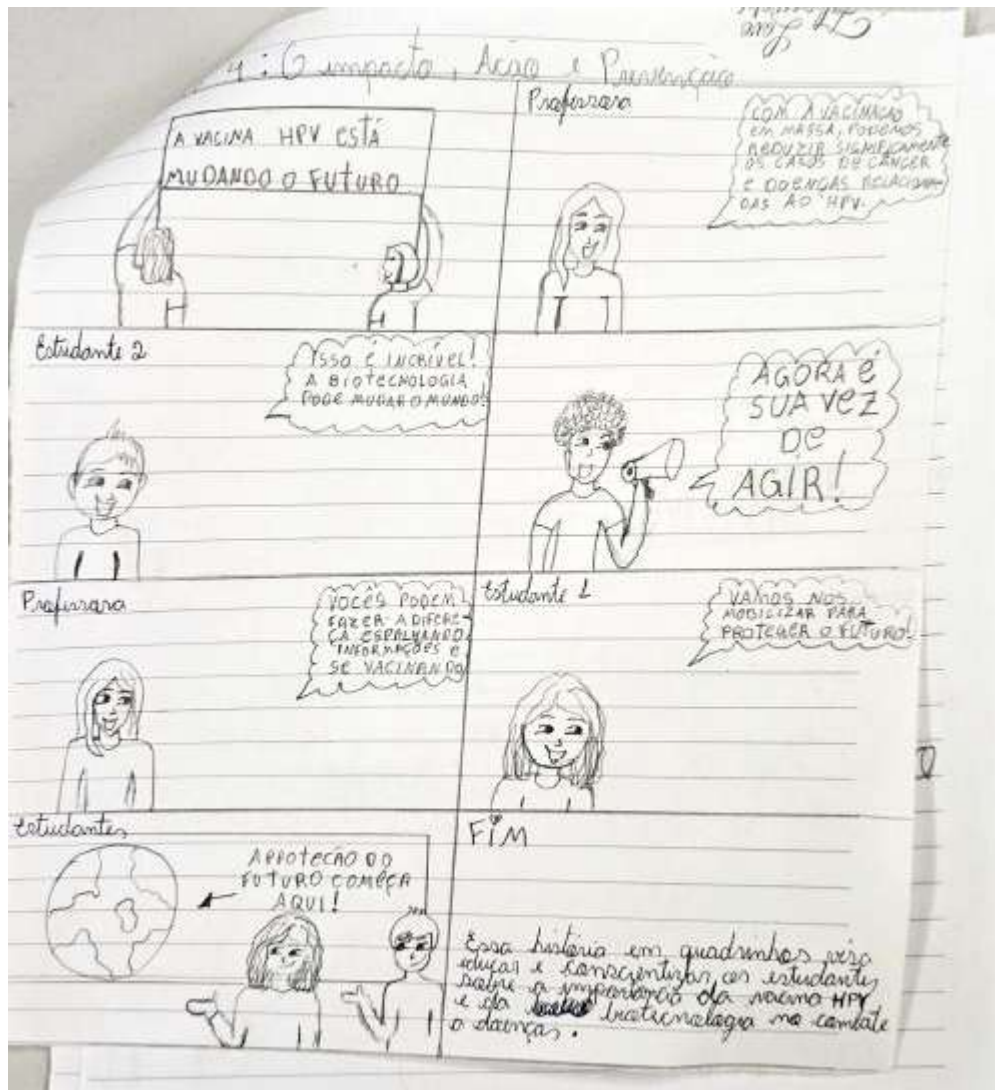 4: O impacto, Ação e Prevenção
A VACINA HPV ESTÁ
MUDANDO O FUTURO
Professora
COM A VACINAÇÃO
EM MASSA, PODEMOS
REDUZIR SIGNIFICAMENTE
OS CASOS DE CÂNCER
E DOENÇAS RELACIONA-
DAS AO HPV.
Estudante 2
ISSO É INCRÍVEL!
A BIOTECNOLOGIA
PODE MUDAR O MUNDO!
AGORA É
SUA VEZ
DE
AGIR!
Professora
VOCÊS PODEM
FAZER A DIFEREN-
ÇA ESPALHANDO
INFORMAÇÕES E
SE VACINANDO
Estudante 1
VAMOS NOS
MOBILIZAR PARA
PROTEGER O FUTURO!
Estudantes
A PROTEÇÃO DO
FUTURO COMEÇA
AQUI!
FIM
Essa história em quadrinhos visa
educar e conscientizar os estudantes
sobre a importância da vacina HPV
e da biotecnologia no combate
a doenças.